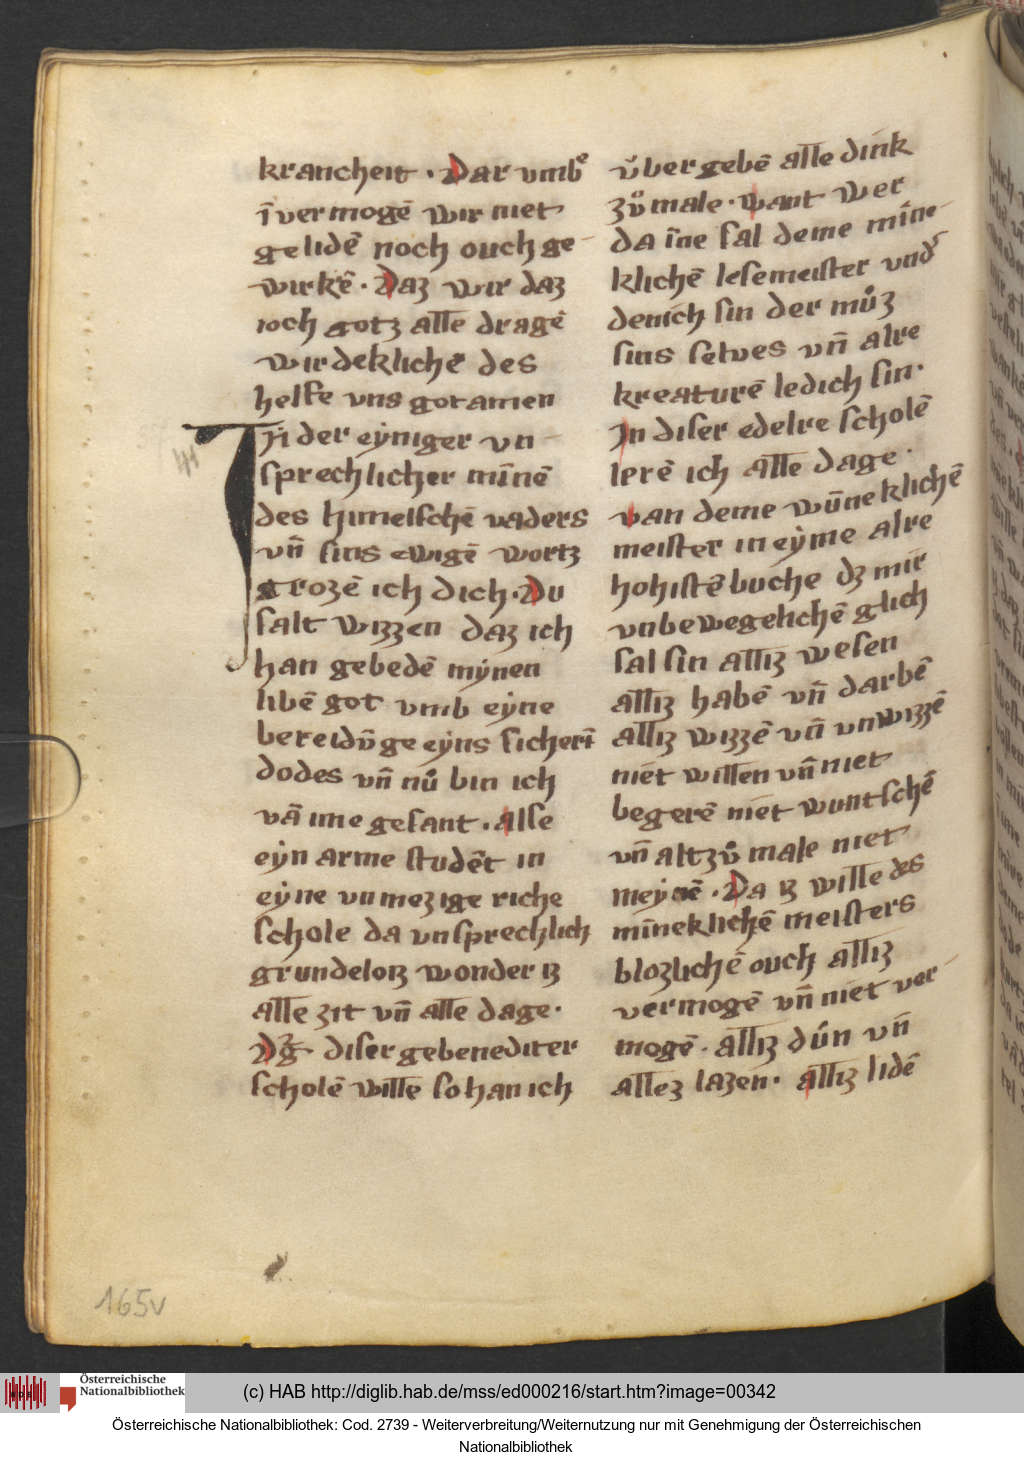 krancheit · Dar vmbͤ
ī vermogē wir niet
gelidē noch ouch ge
wirkē · Daz wir daz
ioch gotz alle dragē
wirdeklichē des
helfe vns got amen
IN der eẏniger vn
sprechlicher mīnē
des himelschē vaders
vn̄ sins ewigē wortz
grozē ich dich · Du
salt wizzen daz ich
han gebedē mẏnen
libē got vmb eẏne
bereidūge eẏns sicherī
dodes vn̄ nuͦ bin ich
vā ime gesant · alse
eẏn arme studēt in
eẏne vnmezige riche
schole da vnsprechlich
grundeloiz wonder iz
alle zit vn̄ alle dage ·
diser gebenediter
scholē wille so han ich
v̆bergebē alle dink
zuͦ male · want wer
da īne sal deme mīne
klichē lesemeister vnd
denich sin der muͦz
sins selues vn̄ alre
kreaturē ledich sin ·
In diser edelre scholē
lerē ich alle dage ·
van deme wūneklichē
meister in eẏme alre
hohistē buche dz mir
vnbewegelichē glich
sal sin alliz wesen
alliz habē vn̄ darbē
alliz wizzē vn̄ vnwizzē
niet willen vn̄ niet
begerē niet wontschē
vn̄ altzuͦ male niet
meẏnē · Da iz wille des
mīneklichē meisters
blozlichē ouch alliz
vermogē vn̄ niet ver
mogē · alliz duͦn vn̄
allez lazen · alliz lidē
165v
Österreichische
Nationalbibliothek
(c) HAB http://diglib.hab.de/mss/ed000216/start.htm?image=00342
Österreichische Nationalbibliothek: Cod. 2739 - Weiterverbreitung/Weiternutzung nur mit Genehmigung der Österreichischen
Nationalbibliothek